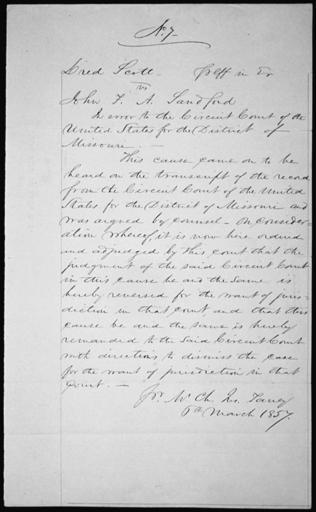 No. 7
Dred Scott Plff in Er
vs
John F. A. Sandford
In error to the Circuit Court of the
United States for the District of
Missouri. —
This cause came on to be
heard on the transcript of the record
from the Circuit Court of the United
States for the District of Missouri and
was argued by counsel — on consider-
ation whereof, it is now here ordered
and adjudged by this court that the
judgment of the said Circuit Court
in this cause be and the same is
hereby reversed for the want of juris-
diction in that court and that this
cause be and the same is hereby
remanded to the said Circuit Court
with directions to dismiss the case
for the want of jurisdiction in that
Court. —
Pr. Mr. Ch. Jus. Taney
6th March 1857.